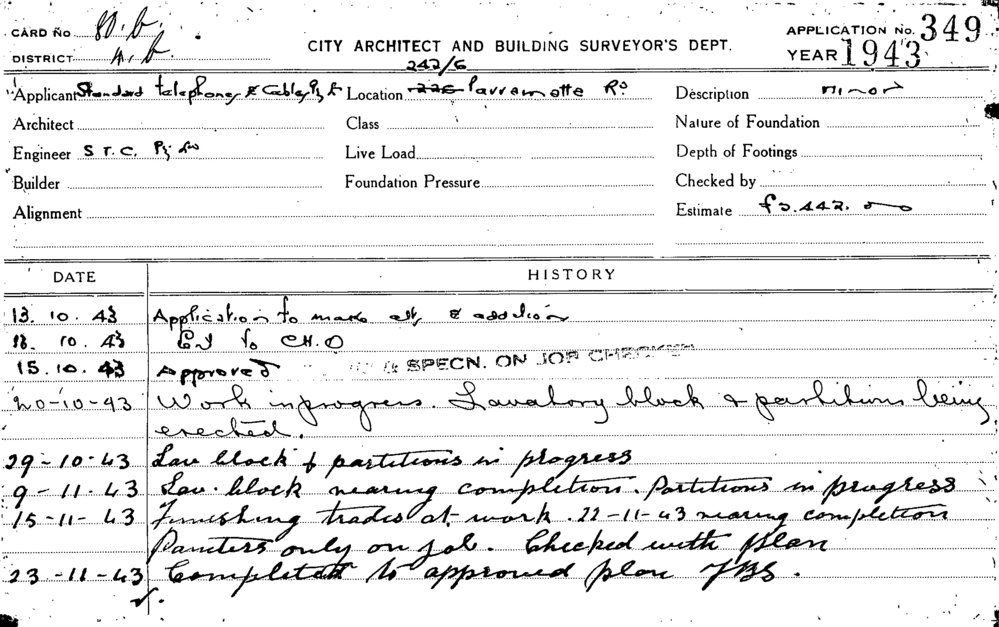 CARD No
DISTRICT
CITY ARCHITECT AND BUILDING SURVEYOR'S DEPT.
APPLICATION No. 349
YEAR 1943
242/6
Applicant Standard telephones & Cables Pty Location 226 Parramatta Rd Description minor
Architect Class Nature of Foundation
Engineer S T. C. Pty Live Load Depth of Footings
Builder Foundation Pressure Checked by
Alignment Estimate £2.442.
DATE HISTORY
13. 10. 43 Application to make & addition
10. 43 to CH.O
15. 10. 43 Approved & SPECN. ON JOB CHECKED
20-10-43 Work in progress. Lavatory block & partitions being
erected.
29-10-43 Lav block & partitions in progress
9-11-43 Lav. block nearing completion. Partitions in progress
15-11-43 Finishing trades at work. 22-11-43 nearing completion
Painters only on job. Checked with plan
23-11-43 Completed to approved plan